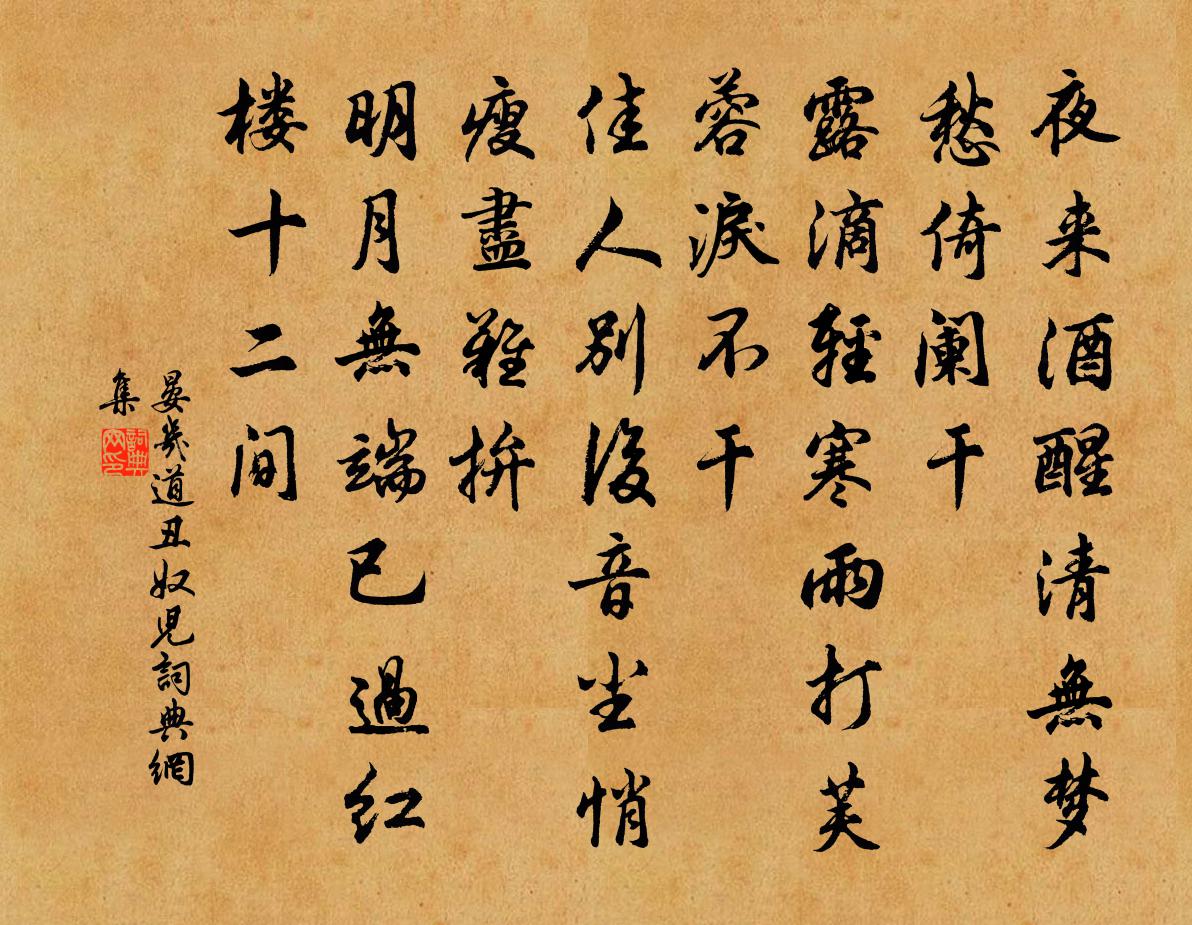 夜来酒醒清無梦
愁倚阑干
露滴輕寒雨打芙
蓉淚不干
佳人别後音尘悄
瘦盡難拚
明月無端已過红
楼十二间
晏幾道丑奴児詞典網
集
詞典
网印